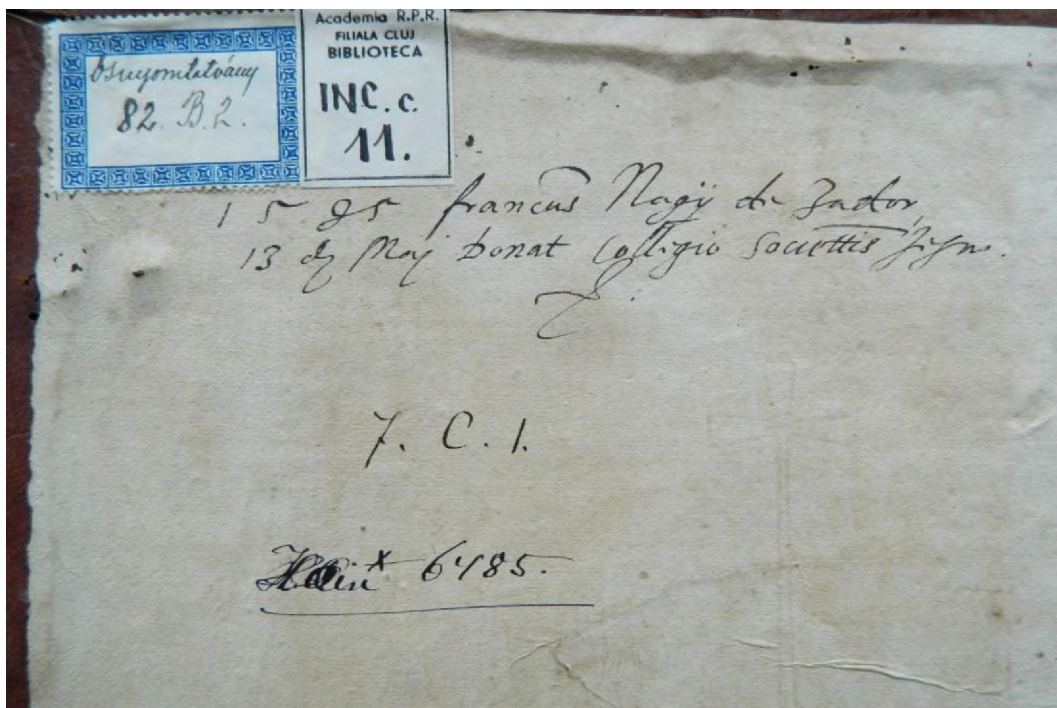 Ősnyomtatvány
82. B. 2.
Academia R.P.R.
FILIALA CLUJ
BIBLIOTECA
INC. c.
11.
1585 francus Nagÿ de Zador
13 Maj Donat Collegio Societtis
7. C. 1.
Hain* 6485.